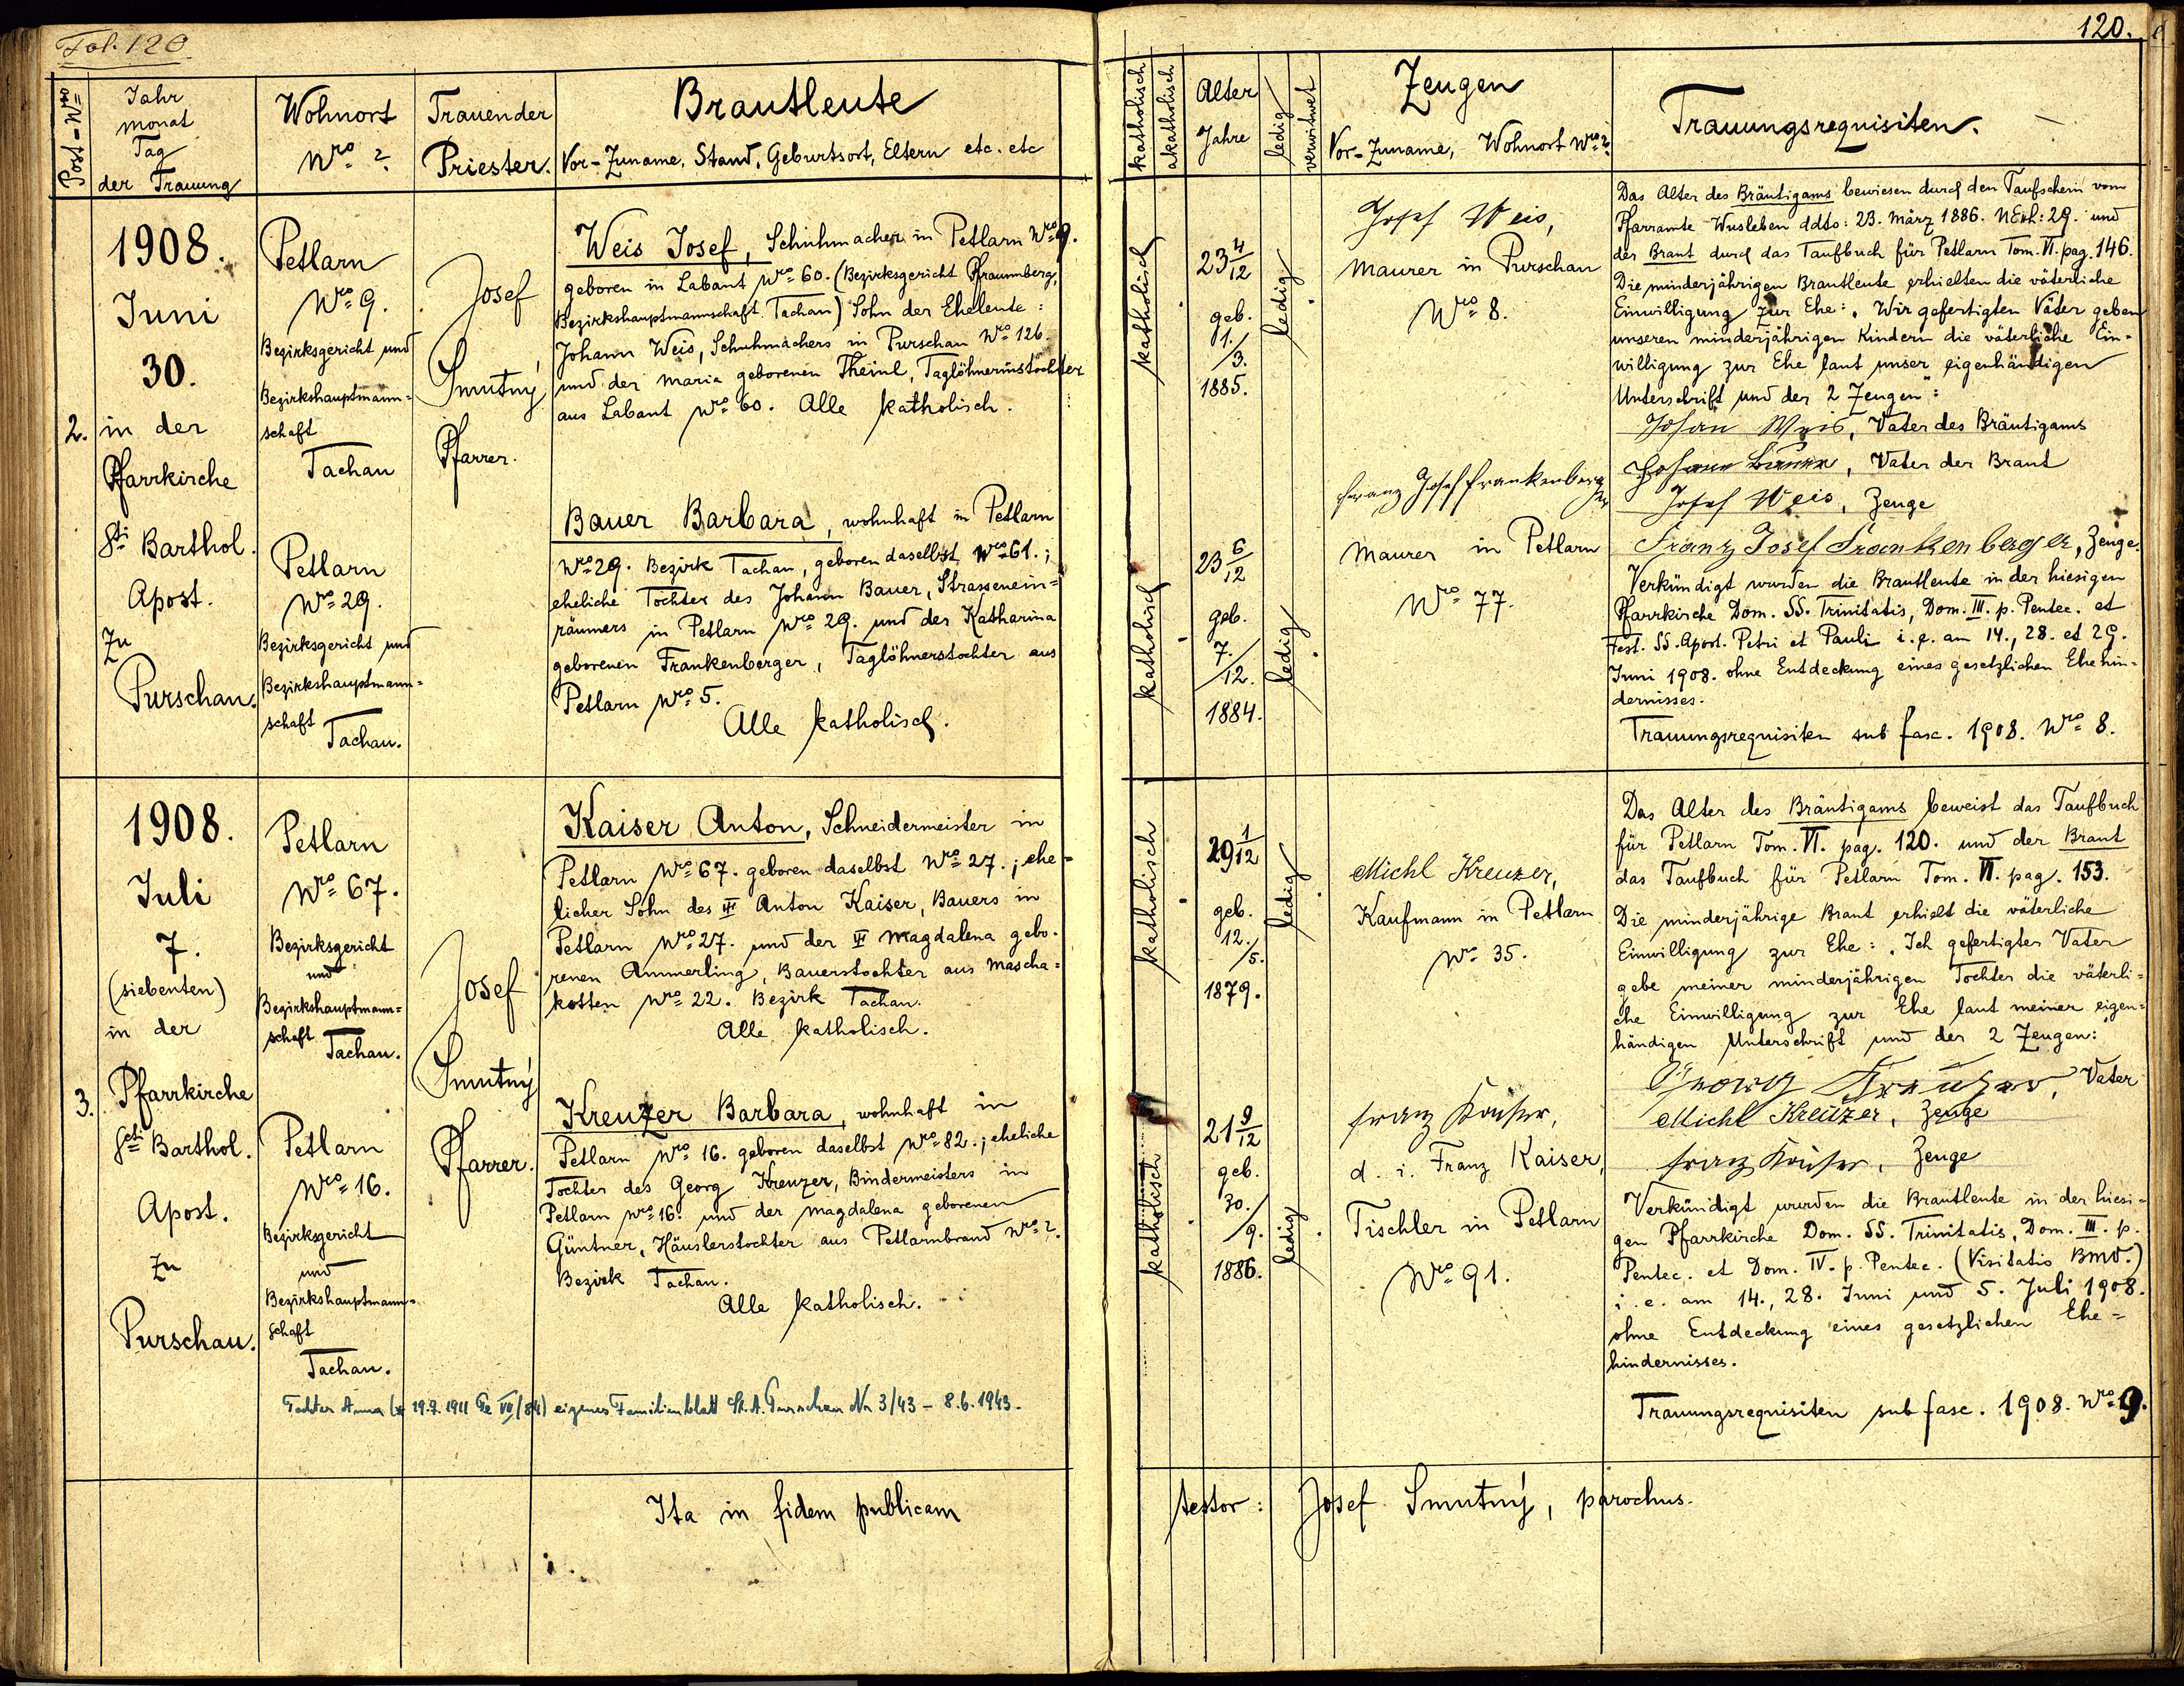 Fol. 120
120.
Post-Nro
Jahr
Monat
Tag
der Trauung
Wohnort
Nro ?
Trauender
Priester.
Brautleute
Vor-Zuname, Stand, Geburtsort, Eltern etc. etc
katholisch
akatholisch
Alter
Jahre
ledig
verwitwet
Zeugen
Vor-Zuname, Wohnort Nro ?
Trauungsrequisiten.
2.
1908.
Juni
30.
in der
Pfarrkirche
Sti Barthol.
Apost.
zu
Purschau.
Petlarn
Nro 9.
Bezirksgericht und
Bezirkshauptmann=
schaft
Tachau
Petlarn
Nro 29.
Bezirksgericht und
Bezirkshauptmann=
schaft
Tachau.
Josef
Smutný
Pfarrer.
Weis Josef, Schuhmacher in Petlarn Nro 9.
geboren in Labant Nro 60. (Bezirksgericht Pfraumberg,
Bezirkshauptmannschaft Tachau) Sohn der Eheleute:
Johann Weis, Schuhmachers in Purschau Nro 126
und der Maria geborenen Theinl, Taglöhnerinstochter
aus Labant Nro 60. Alle katholisch.
Bauer Barbara, wohnhaft in Petlarn
Nro 29. Bezirk Tachau, geboren daselbst Nro 61.;
eheliche Tochter des Johann Bauer, Strassenein=
räumers in Petlarn Nro 29. und der Katharina
geborenen Frankenberger, Taglöhnerstochter aus
Petlarn Nro 5.
Alle katholisch.
katholisch
23 4/12
geb.
1./3.
1885.
ledig
katholisch
23 6/12
geb.
7./12.
1884.
ledig
Josef Weis,
Maurer in Purschau
Nro 8.
Franz Josef Frankenberger
Maurer in Petlarn
Nro 77.
Das Alter des Bräutigams bewiesen durch den Taufschein vom
Pfarramte Wusleben ddto: 23. März 1886. NExh: 29. und
der Braut durch das Taufbuch für Petlarn Tom. VI. pag. 146.
Die minderjährigen Brautleute erhielten die väterliche
Einwilligung zur Ehe: „Wir gefertigten Väter geben
unseren minderjährigen Kindern die väterliche Ein-
willigung zur Ehe laut unser eigenhändigen
Unterschrift und der 2 Zeugen":
Johan Weis, Vater des Bräutigams
Johann Bauer, Vater der Braut
Josef Weis, Zeuge
Franz Josef Frankenberger, Zeuge.
Verkündigt wurden die Brautleute in der hiesigen
Pfarrkirche Dom. SS. Trinitatis, Dom. III. p. Pentec. et
Fest. SS. Apost. Petri et Pauli i. e. am 14., 28. et 29.
Juni 1908. ohne Entdeckung eines gesetzlichen Ehehin-
dernisses.
Trauungsrequisiten sub fasc. 1908. Nro 8.
3.
1908.
Juli
7.
(siebenten)
in der
Pfarrkirche
Scti Barthol.
Apost.
zu
Purschau.
Petlarn
Nro 67.
Bezirksgericht
und
Bezirkshauptmann=
schaft
Tachau.
Petlarn
Nro 16.
Bezirksgericht
und
Bezirkshauptmann=
schaft
Tachau.
Josef
Smutný
Pfarrer.
Kaiser Anton, Schneidermeister in
Petlarn Nro 67. geboren daselbst Nro 27.; ehe=
licher Sohn des Anton Kaiser, Bauers in
Petlarn Nro 27. und der Magdalena gebo-
renen Ammerling, Bauerstochter aus Mascha=
kotten Nro 22. Bezirk Tachau.
Alle katholisch.
Kreuzer Barbara, wohnhaft in
Petlarn Nro 16. geboren daselbst Nro 82.; eheliche
Tochter des Georg Kreuzer, Bindermeisters in
Petlarn Nro 16. und der Magdalena geborenen
Güntner, Häuslerstochter aus Petlarnbrand Nro 2.
Bezirk Tachau.
Alle katholisch.
Tochter Anna (* 19.9.1911 Ge VII/84) eigenes Familienblatt St. A. Purschau Nr 3/43 – 8.6.1943.
katholisch
29 1/12
geb.
12./5.
1879.
ledig
katholisch
21 9/12
geb.
30./9.
1886.
ledig
Michl Kreuzer,
Kaufmann in Petlarn
Nro 35.
Franz Kaiser,
d. i. Franz Kaiser,
Tischler in Petlarn
Nro 91.
Das Alter des Bräutigams beweist das Taufbuch
für Petlarn Tom. VI. pag. 120. und der Braut
das Taufbuch für Petlarn Tom. VI. pag. 153.
Die minderjährige Braut erhielt die väterliche
Einwilligung zur Ehe: „Ich gefertigter Vater
gebe meiner minderjährigen Tochter die väterli=
che Einwilligung zur Ehe laut meiner eigen=
händigen Unterschrift und der 2 Zeugen:
Georg Kreuzer, Vater
Michl Kreuzer, Zeuge
Franz Kaiser, Zeuge
Verkündigt wurden die Brautleute in der hiesi=
gen Pfarrkirche Dom. SS. Trinitatis, Dom. III. p.
Pentec. et Dom. IV. p. Pentec. (Visitatio BMV.)
i. e. am 14., 28. Juni und 5. Juli 1908.
ohne Entdeckung eines gesetzlichen Ehe=
hindernisses.
Trauungsrequisiten sub fasc. 1908. Nro 9.
Ita in fidem publicam testor: Josef Smutný, parochus.